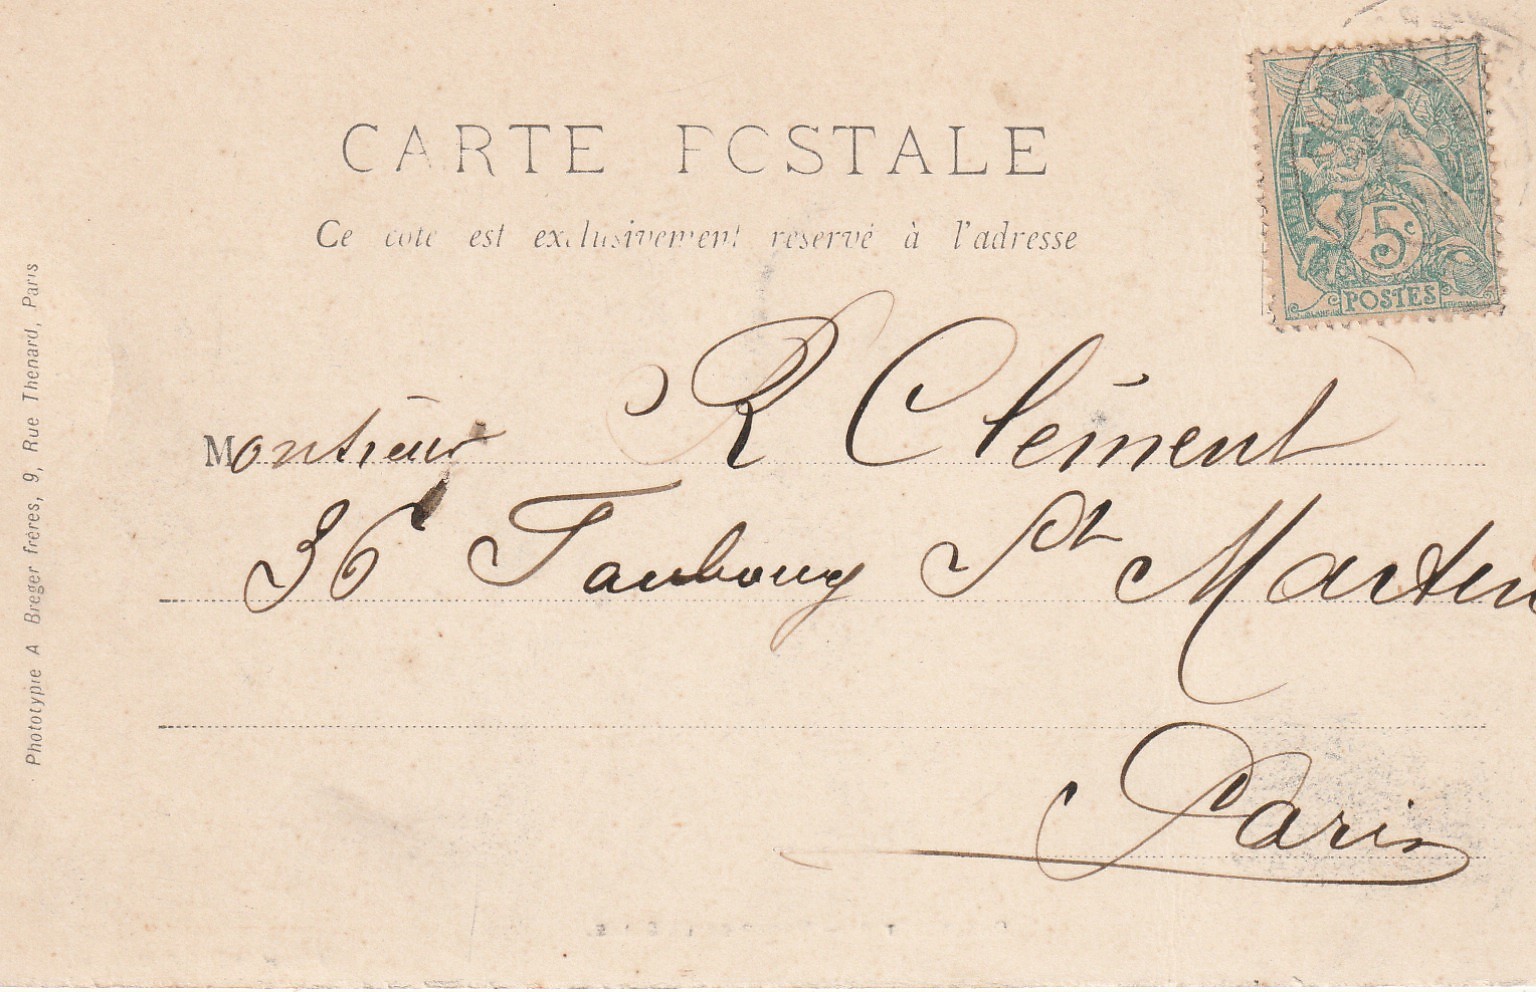 CARTE POSTALE
Ce côté est exclusivement réservé à l'adresse
5c
POSTES
Monsieur R Clément
36 Faubourg St Martin
Paris
Phototypie A Breger frères, 9, Rue Thenard, Paris